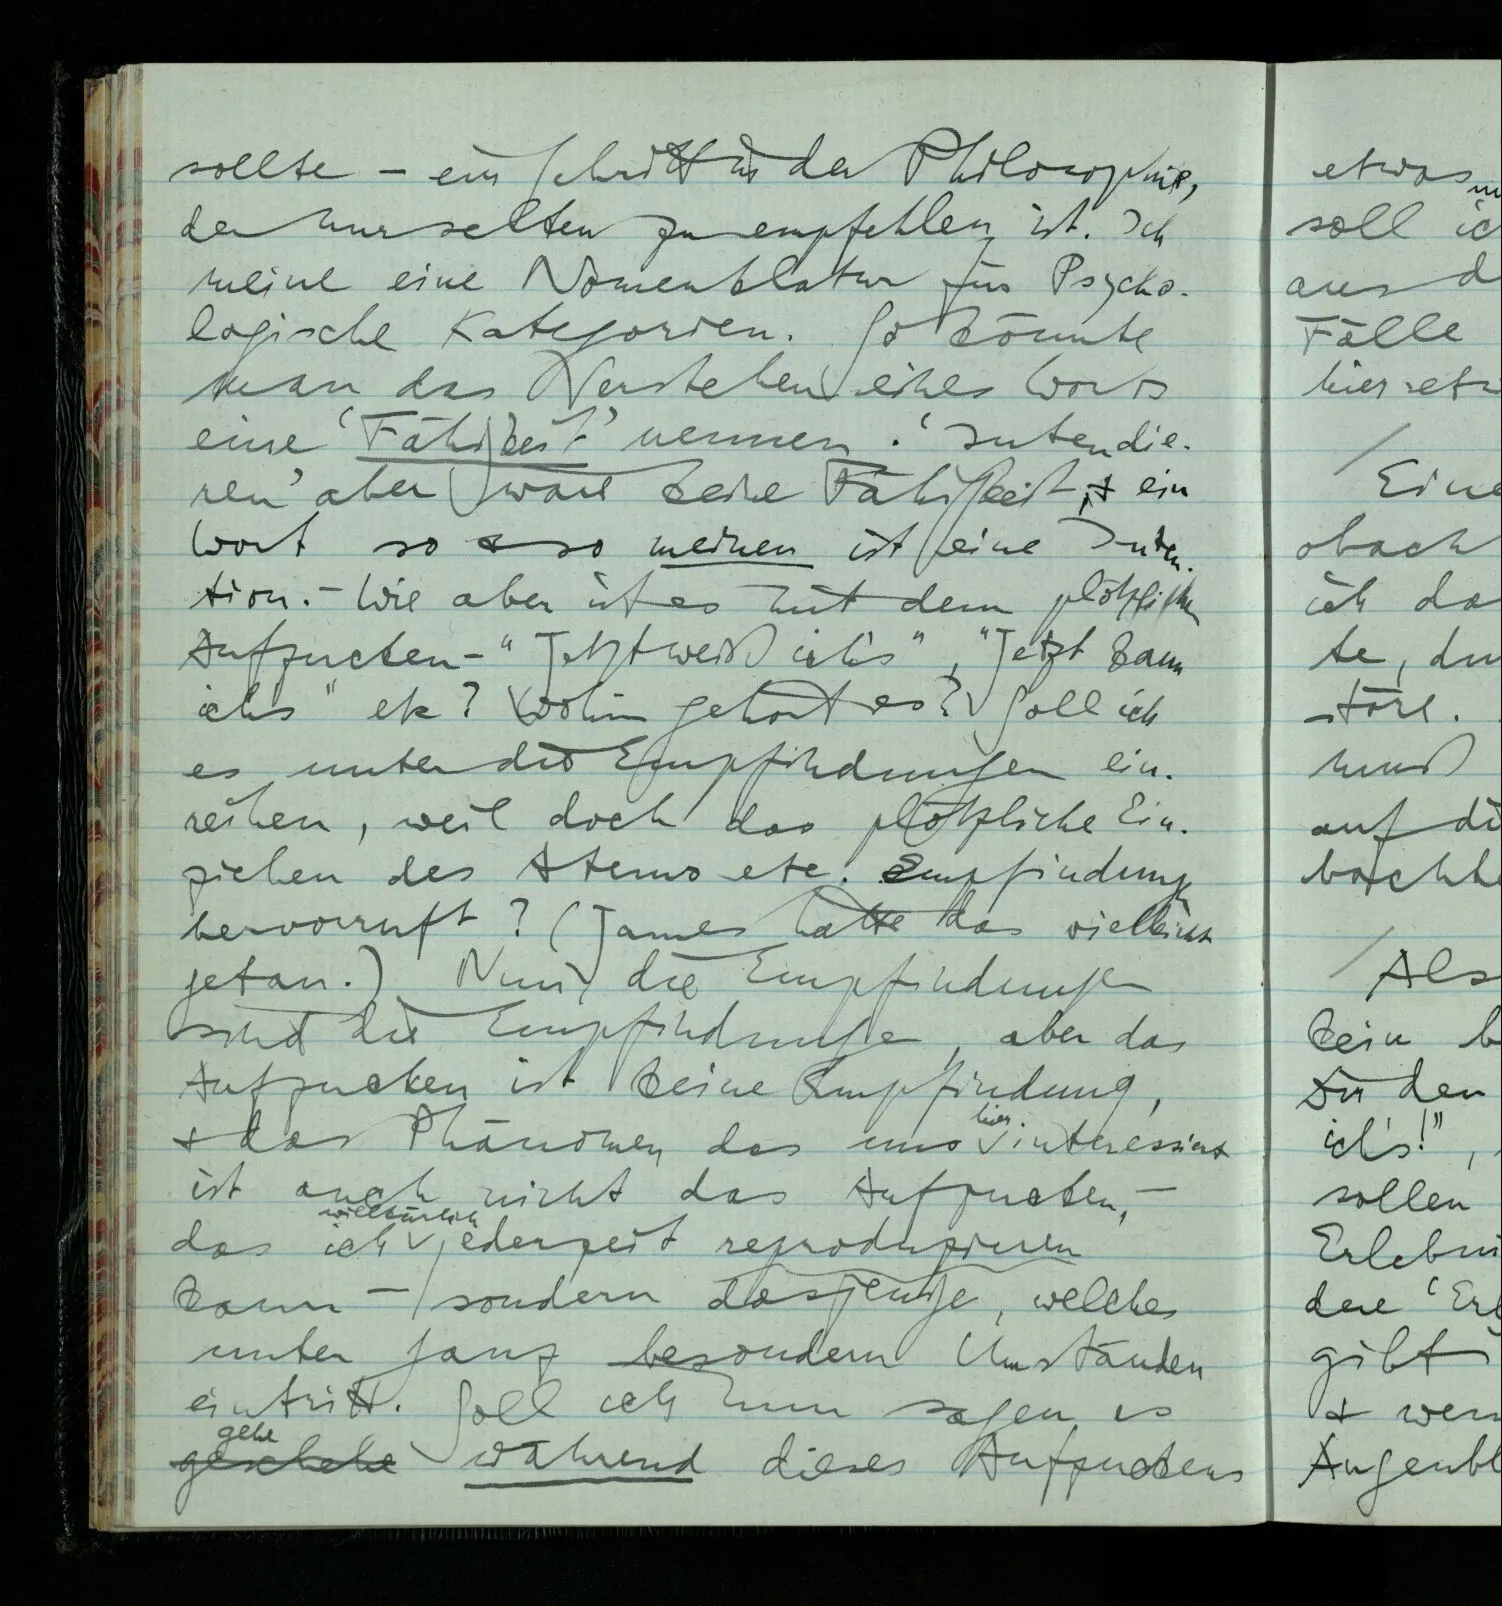 sollte – ein Schritt in der Philosophie,
der nur selten zu empfehlen ist. Ich
meine eine Nomenklatur für Psycho-
logische Kategorien. So könnte
man das Verstehen eines Worts
eine ‘Fähigkeit’ nennen. ‘Intendie-
ren’ aber wäre keine Fähigkeit, & ein
Wort so & so meinen ist eine Inten-
tion. – Wie aber ist es mit dem plötzlichen
Aufzucken – “Jetzt weiß ich's”, “Jetzt kann
ich's” etc? Wohin gehört es? Soll ich
es unter die Empfindungen ein-
reihen, weil doch das plötzliche Ein-
ziehen des Atems etc. Empfindungen
hervorruft? (James hätte das vielleicht
getan.) Nun, die Empfindungen
sind die Empfindungen, aber das
Aufzucken ist keine Empfindung,
& das Phänomen das uns hier interessiert
ist auch nicht das Aufzucken, –
das ich willkürlich jederzeit reproduzieren
kann – sondern dasjenige, welches
unter ganz besondern Umständen
eintritt. Soll ich nun sagen, es
geschehe gehe während dieses Aufzuckens
etwas
soll ich
aus d
Fälle
hier etw
/
Eine
obach
ich da
te, du
störe.
muß
auf di
bachte
/ Als
kein b
In den
ich's!”,
sollen
Erlebni
dere ‘Erl
gibt
& wen
Augenbl